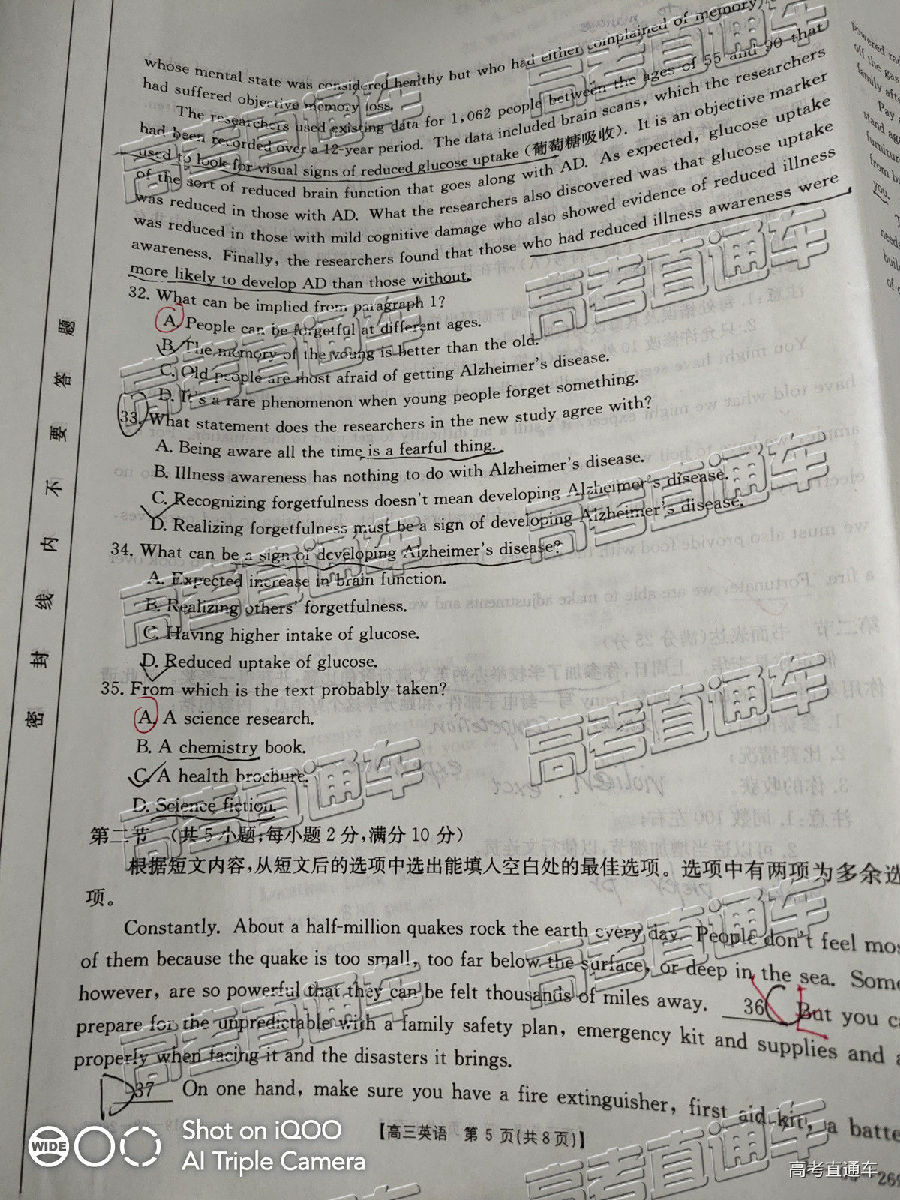 whose mental state was considered healthy but who had either complained of memory
had suffered objective memory loss.
The researchers used existing data for 1,062 people between the ages of 55 and 90 that
had been recorded over a 12-year period. The data included brain scans, which the researchers
used to look for visual signs of reduced glucose uptake (葡萄糖吸收). It is an objective marker
of the sort of reduced brain function that goes along with AD. As expected, glucose uptake
was reduced in those with AD. What the researchers also discovered was that glucose uptake
was reduced in those with mild cognitive damage who also showed evidence of reduced illness
awareness. Finally, the researchers found that those who had reduced illness awareness were
more likely to develop AD than those without.
32. What can be implied from paragraph 1?
A. People can be forgetful at different ages.
B. The memory of the young is better than the old.
C. Old people are most afraid of getting Alzheimer's disease.
D. It's a rare phenomenon when young people forget something.
33. What statement does the researchers in the new study agree with?
A. Being aware all the time is a fearful thing.
B. Illness awareness has nothing to do with Alzheimer's disease.
C. Recognizing forgetfulness doesn't mean developing Alzheimer's disease.
D. Realizing forgetfulness must be a sign of developing Alzheimer's disease.
34. What can be a sign of developing Alzheimer's disease?
A. Expected increase in brain function.
B. Realizing others' forgetfulness.
C. Having higher intake of glucose.
D. Reduced uptake of glucose.
35. From which is the text probably taken?
A. A science research.
B. A chemistry book.
C. A health brochure.
D. Science fiction.
第二节 (共5小题;每小题2分,满分10分)
根据短文内容,从短文后的选项中选出能填入空白处的最佳选项。选项中有两项为多余选
项。
Constantly. About a half-million quakes rock the earth every day. People don't feel mos
of them because the quake is too small, too far below the surface, or deep in the sea. Some
however, are so powerful that they can be felt thousands of miles away. 36 But you ca
prepare for the unpredictable with a family safety plan, emergency kit and supplies and a
properly when facing it and the disasters it brings.
37 On one hand, make sure you have a fire extinguisher, first aid kit, a batte
【高三英语 第5页(共8页)】
密 封 线 内 不 要 答 题
高考直通车
Shot on iQOO
AI Triple Camera
WIDE
高考直通车
269